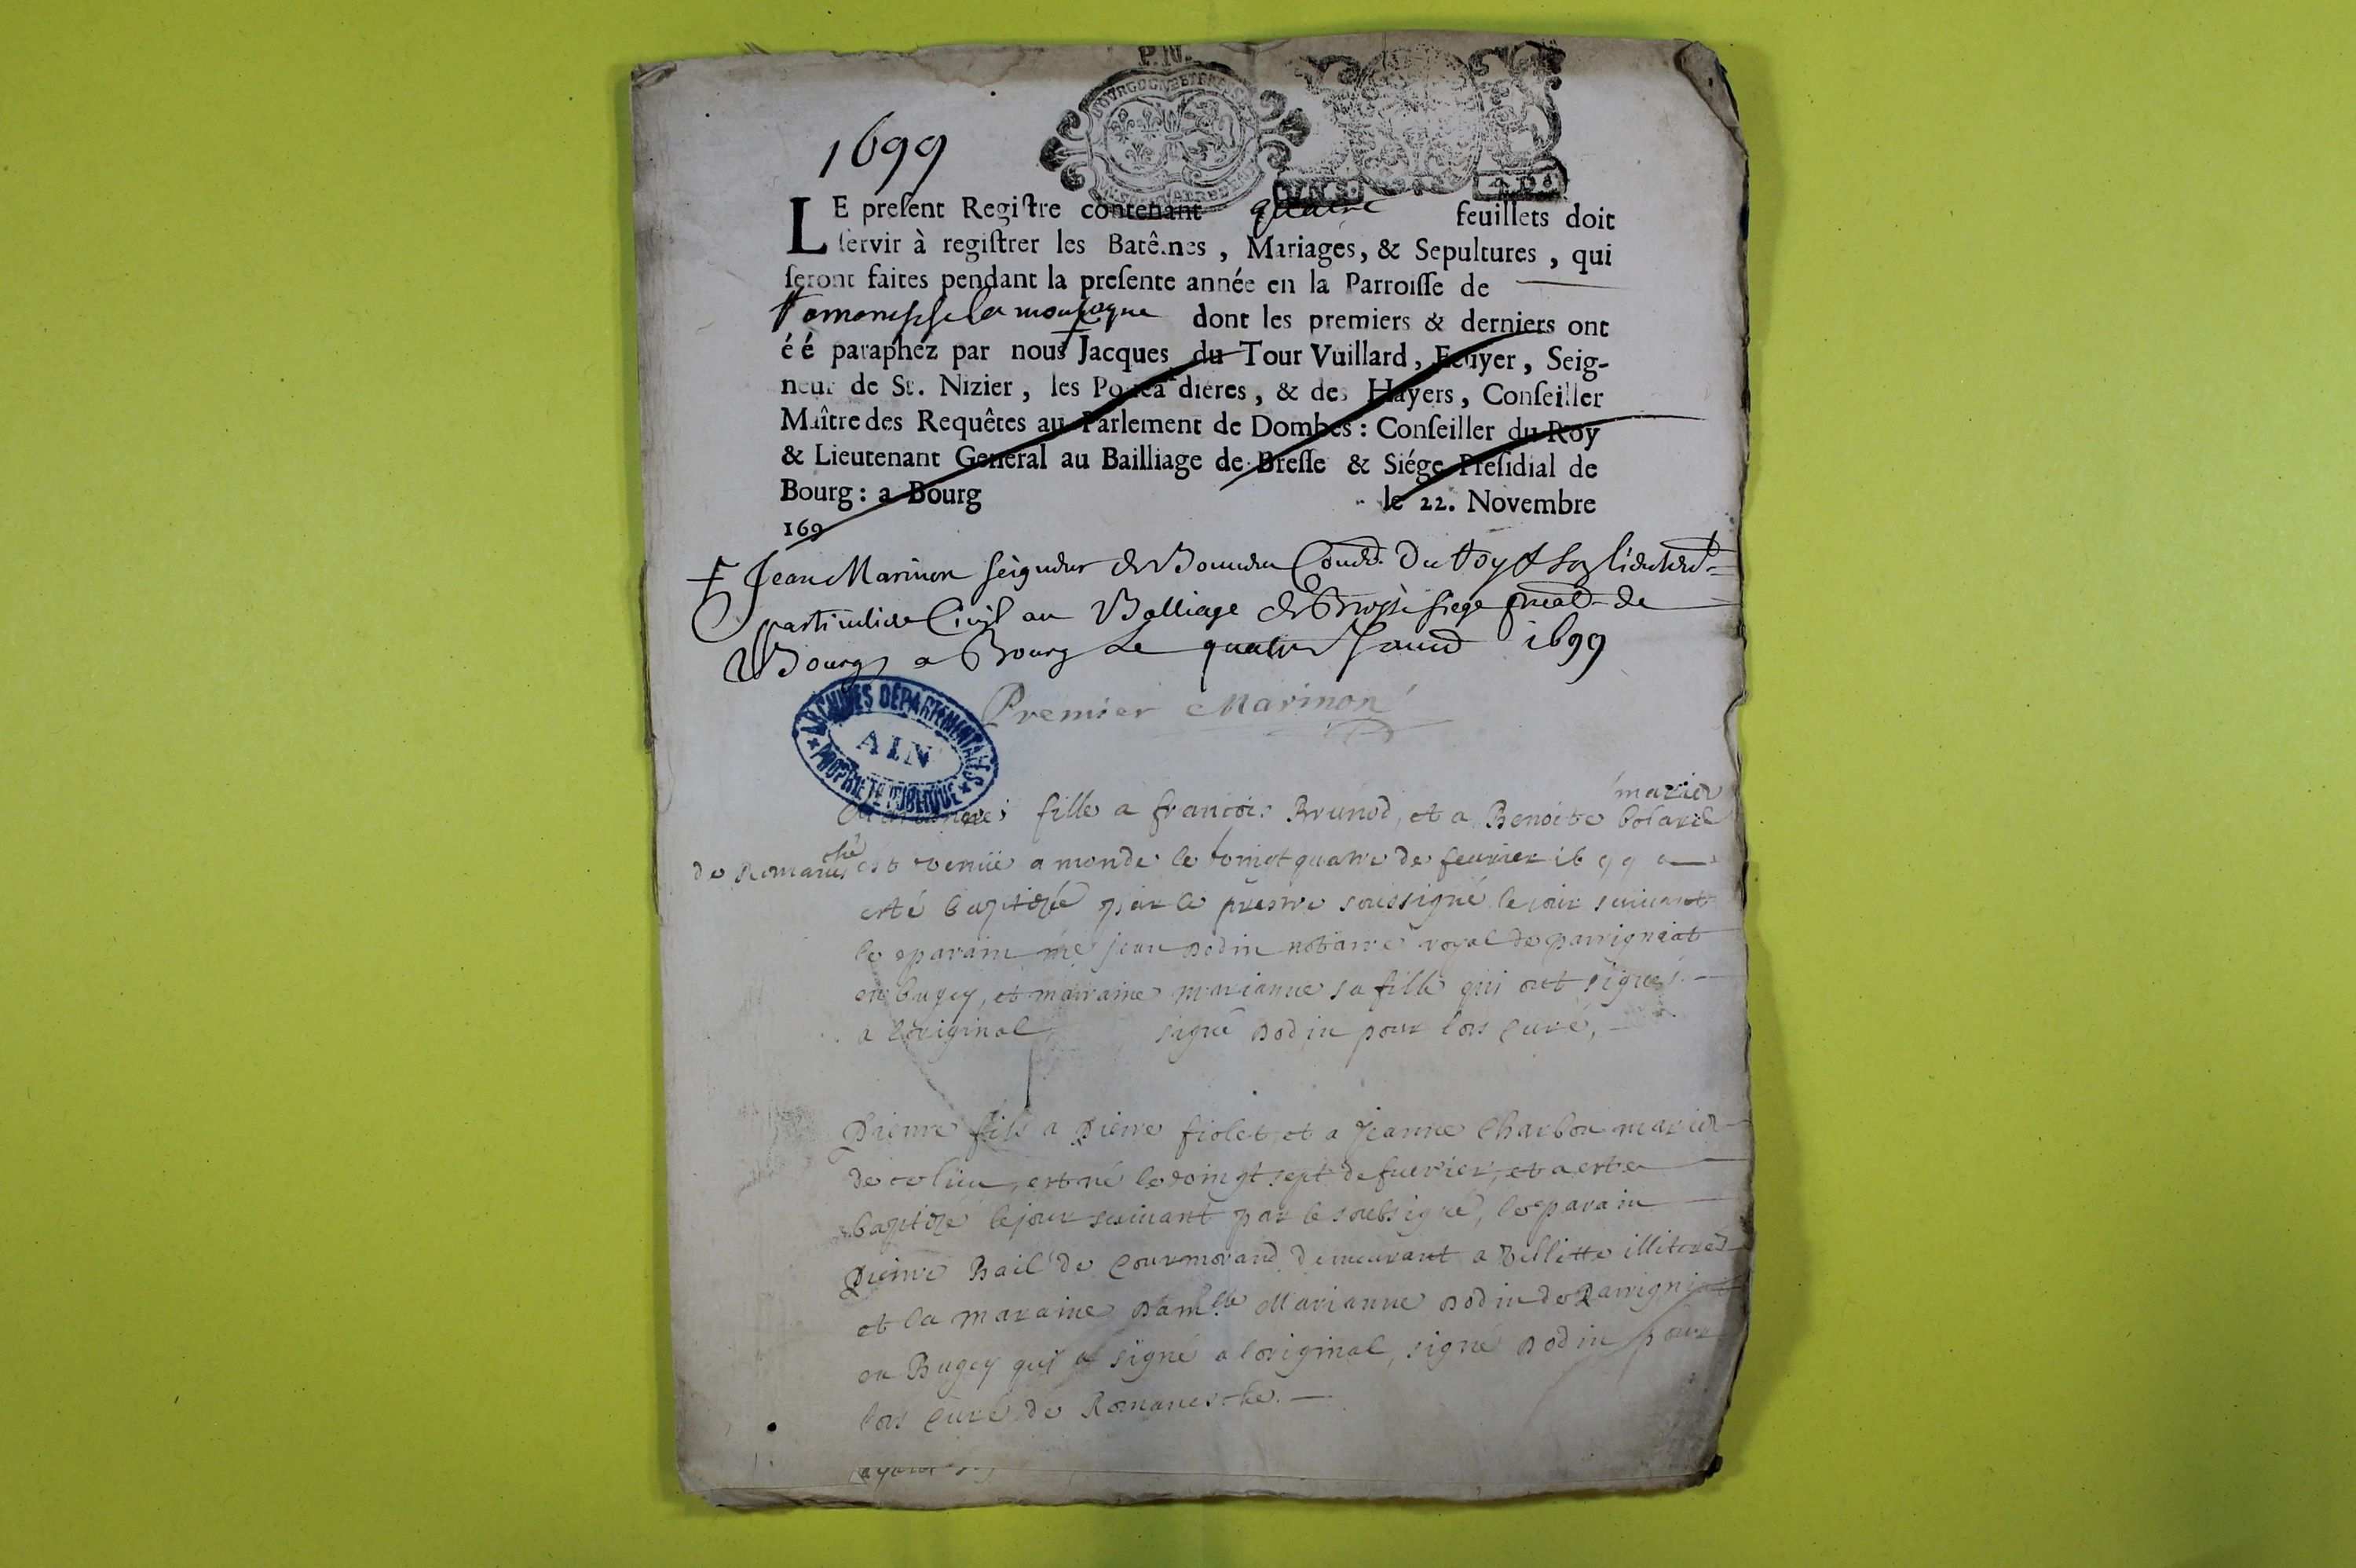 P. IV.
BOURGOGNE BET BRESSE
1699
LE preſent Regiſtre contenant quatre feuillets doit
ſervir à regiſtrer les Batêmes, Mariages, & Sepultures, qui
ſeront faites pendant la preſente année en la Parroiſſe de
Romanesche la montagne dont les premiers & derniers ont
é é paraphez par nous Jacques du Tour Vuillard, Ecuyer, Seig-
neur de St. Nizier, les dieres, & des Hayers, Conſeiller
Maître des Requêtes au Parlement de Dombes: Conſeiller du Roy
& Lieutenant General au Bailliage de Breſſe & Siége Preſidial de
Bourg: a Bourg le 22. Novembre
169
Jean Marinon seigneur de Conser. Du Roy & son lieutent
particulier Civil au Balliage de Bresse siege pneal de
Bourg a Bourg Le quatre Janvier 1699
Premier Marinon
ARCHIVES DÉPARTEMENTALES
AIN
PROPRIÉTÉ PUBLIQUE
mariez
fille a francois Brunod, et a Benoite
de Romanesche est venüe a monde le vingt quatre de feurier 1699 a
esté baptizée par le prestre soussigné le jour suiuant
le parain me jean Dodin notaire royal de parrigniat
en bugey, et maraine marianne sa fille qui ont signés
a loriginal signé Dodin pour lors curé,
Pierre fils a Pierre fiolet et a Jeanne Charbon mariez
de est né le vingt sept de feurier, et a esté
baptize le jour suiuant par le soubsigné, le parain
Pierre Bail de Courmorand demeurant a Villette illiteré
et la maraine Damlle Marianne Dodin de Parrigniat
en Bugey qui a signé a loriginal, signé Dodin pour
lors curé de Romanesche.